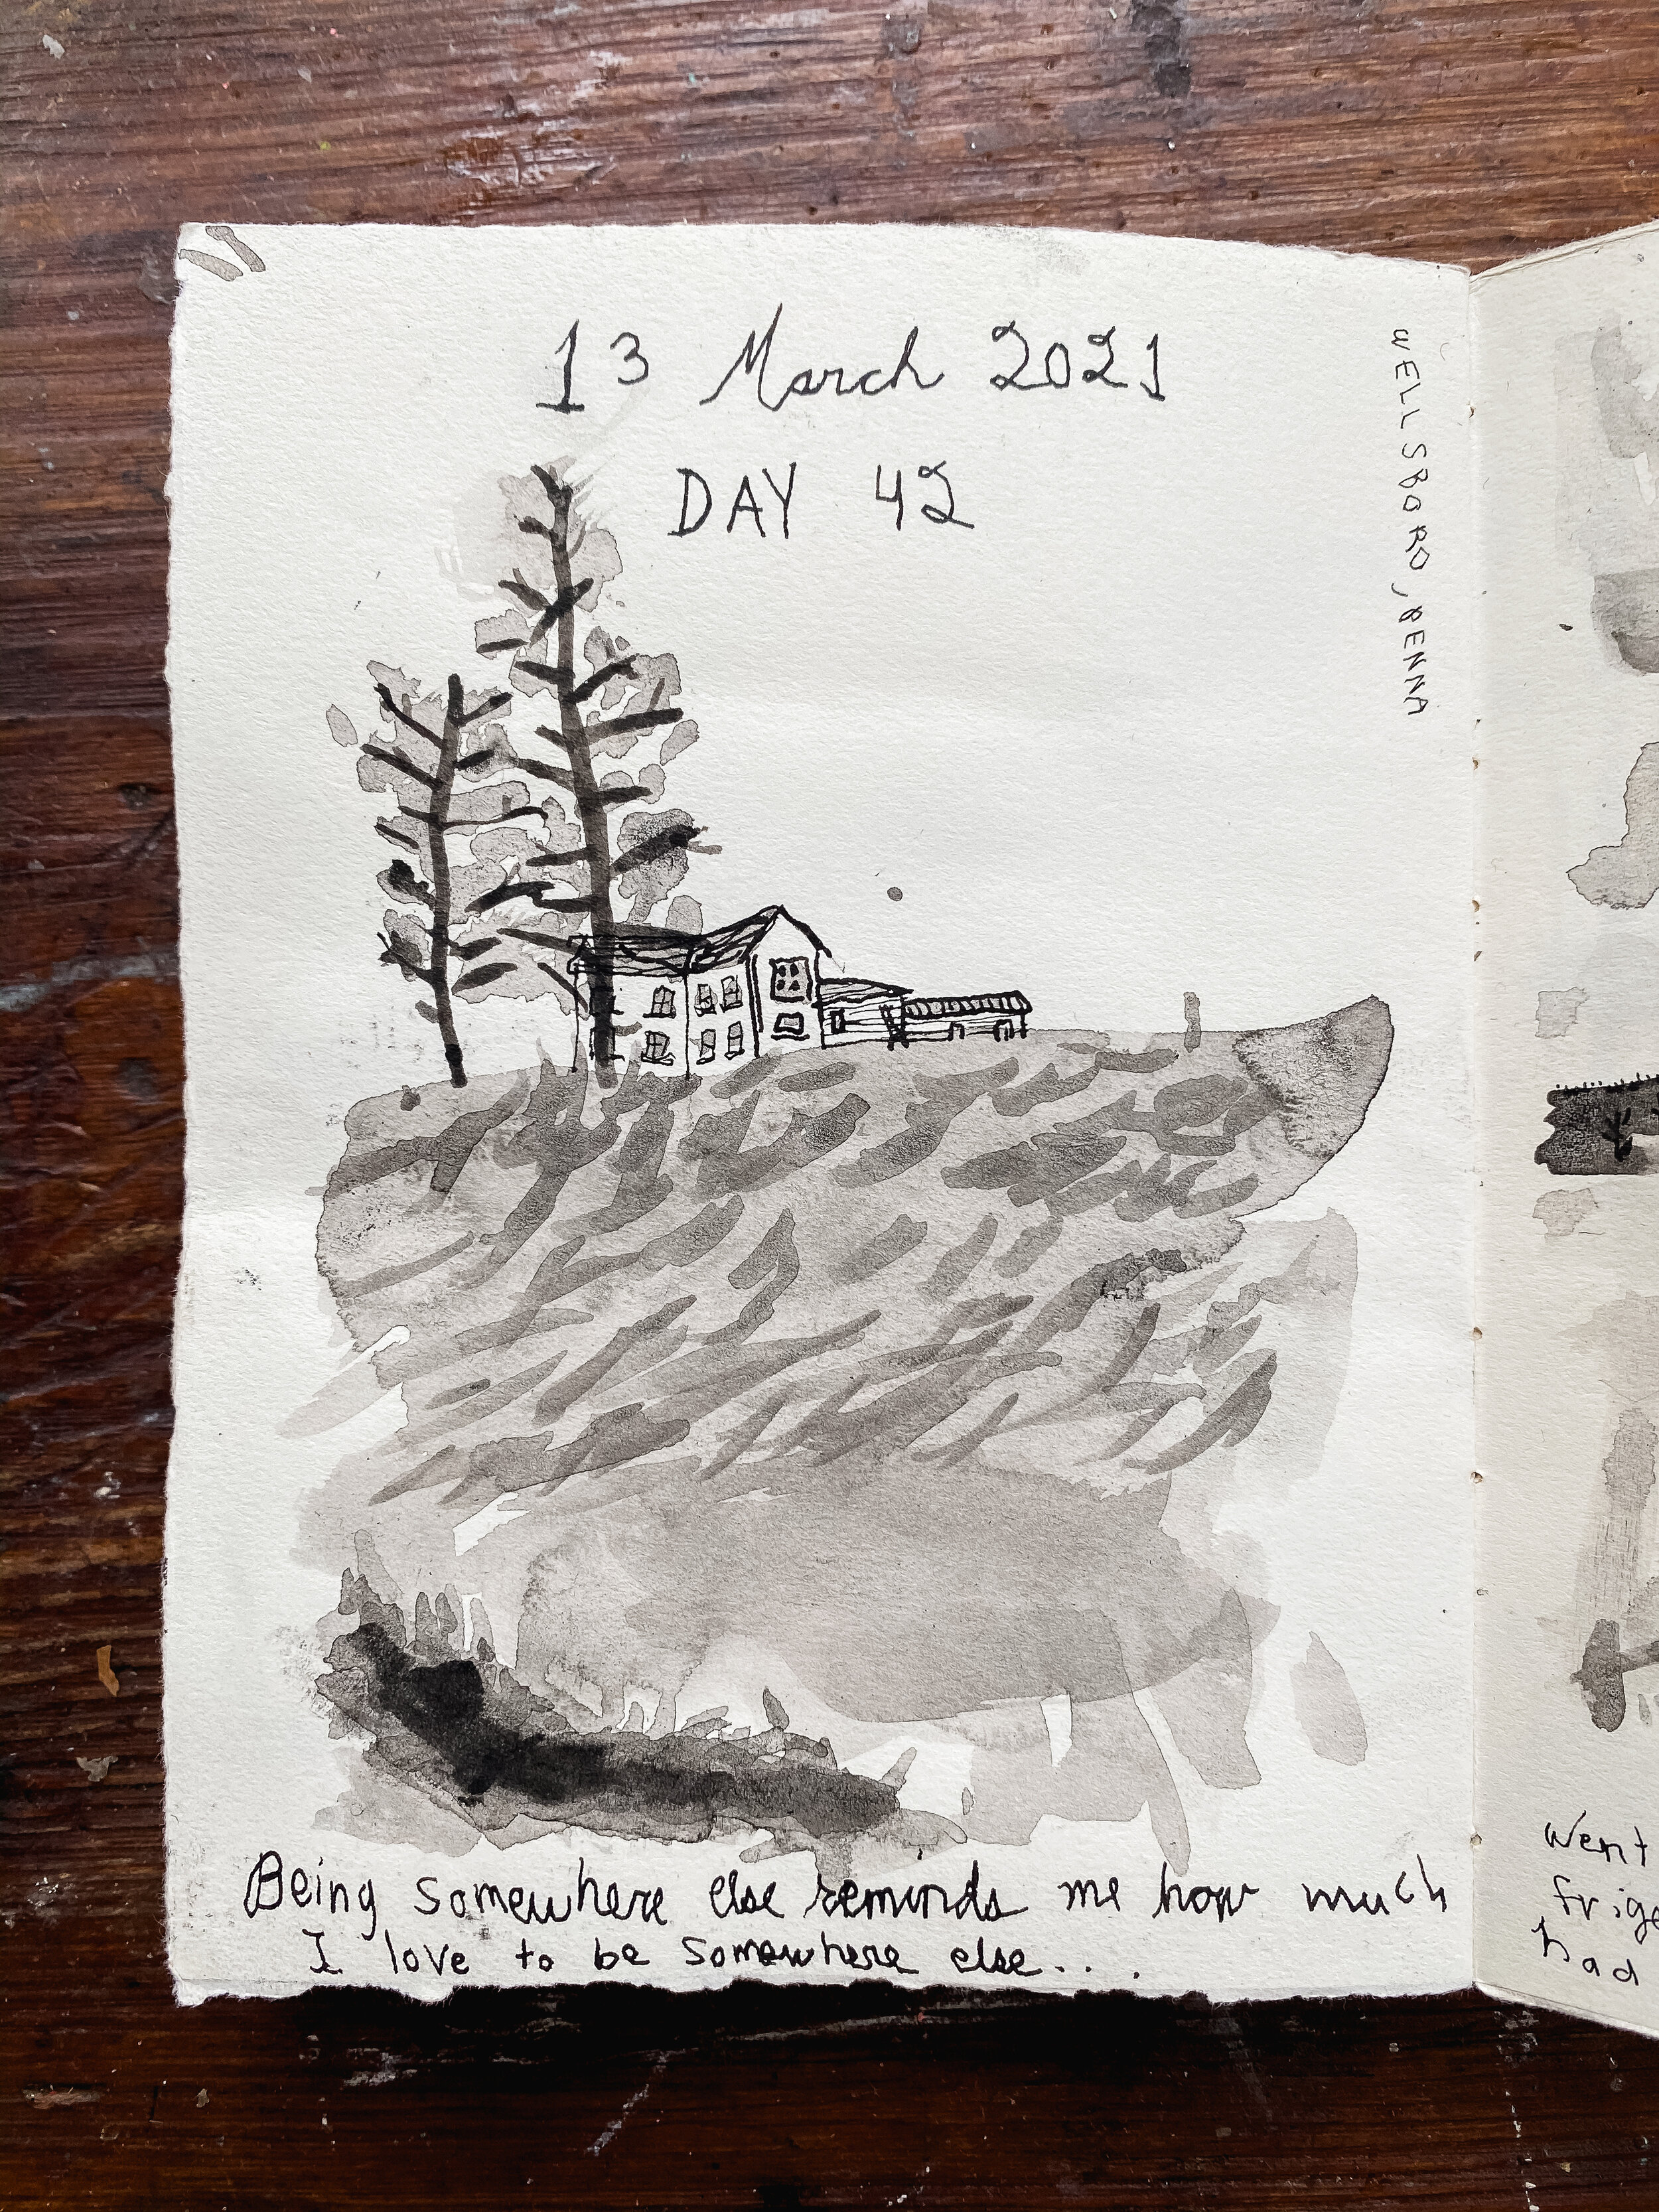 13 March 2021
DAY 42
WELLSBORO, PENNA
Being somewhere else reminds me how much
I love to be somewhere else...
Went
frige
had